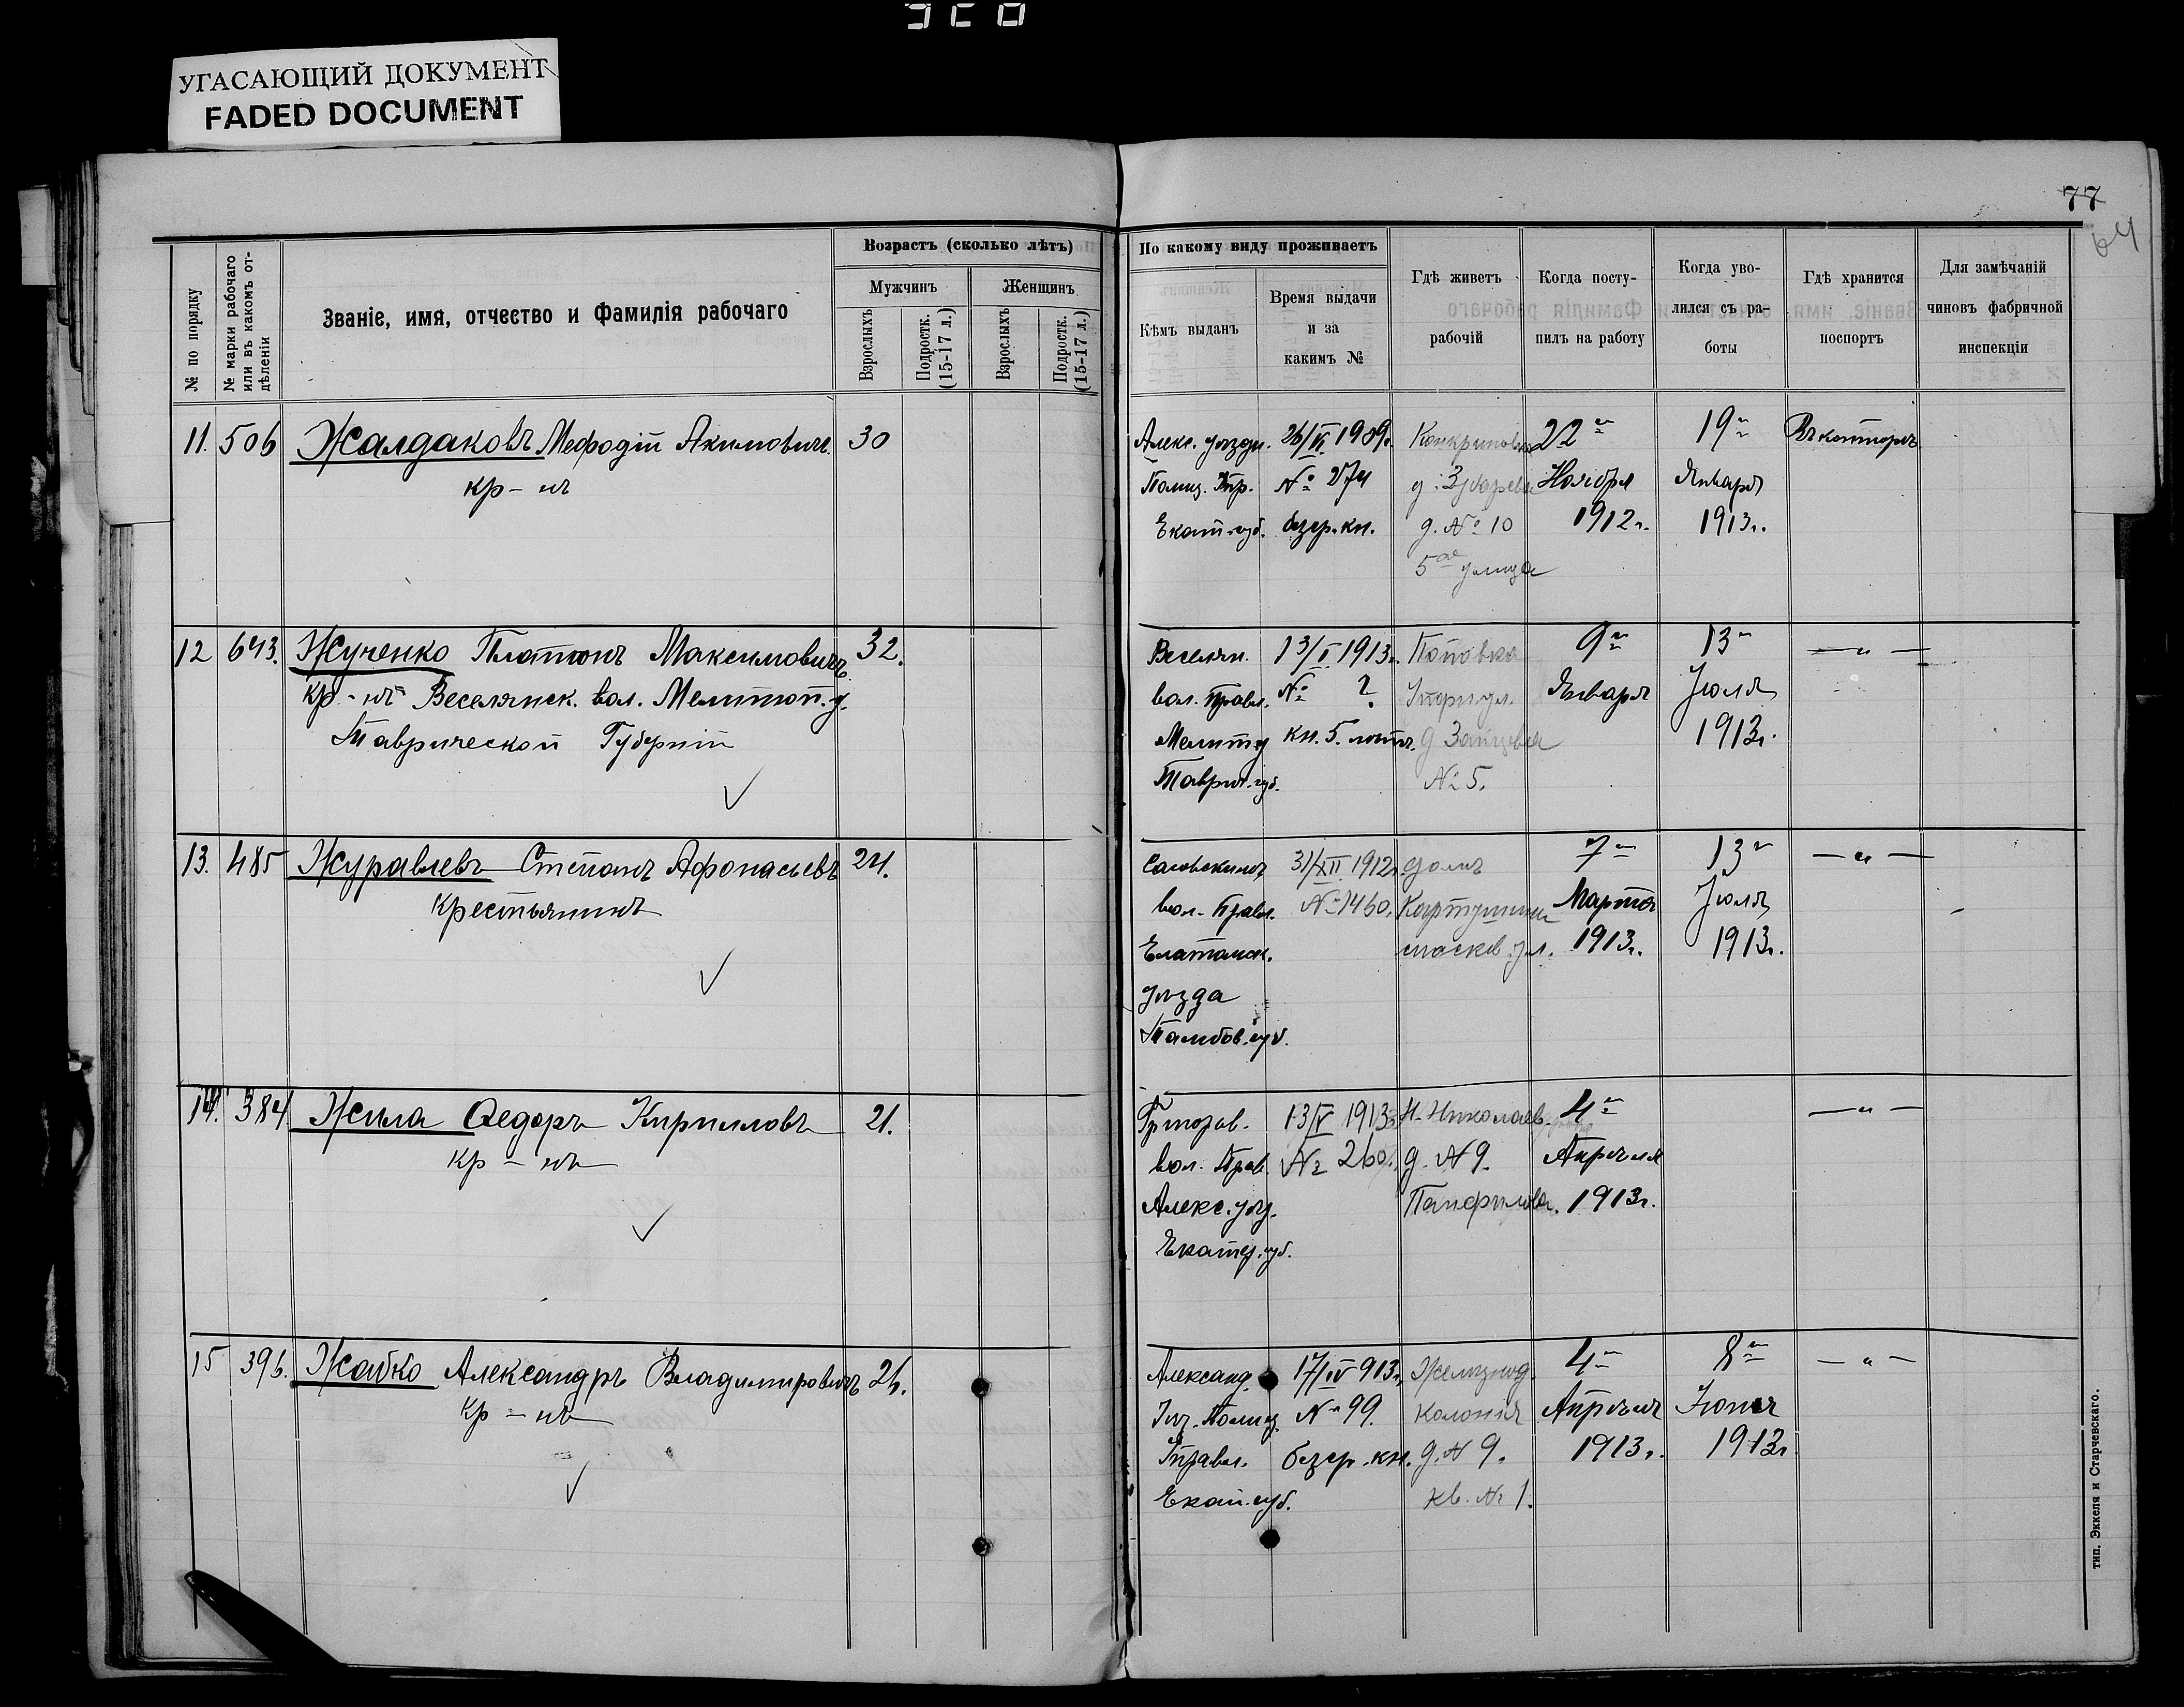 УГАСАЮЩИЙ ДОКУМЕНТ
FADED DOCUMENT
77
64
№ по порядку
№ марки рабочаго или въ какомъ отдѣленіи
Званіе, имя, отчество и фамилія рабочаго
Возрастъ (сколько лѣтъ)
Мужчинъ
Женщинъ
Взрослыхъ
Подростк. (15-17 л.)
Взрослыхъ
Подростк. (15-17 л.)
По какому виду проживаетъ
Кѣмъ выданъ
Время выдачи
и за
какимъ №
Гдѣ живетъ
рабочій
Когда посту-
пилъ на работу
Когда уво-
лился съ ра-
боты
Гдѣ хранится
поспортъ
Для замѣчаній
чиновъ фабричной
инспекціи
11. 506 Жалдаковъ Мефодій Акимовичъ. 30
кр-нъ
Алекс. уѣздн.
Полиц. Упр.
Екат. губ.
26/VI 1909г.
№ 274
безср. кн.
д. № 10
5ая улица
22го
Ноября
1912г.
19го
Января
1913г.
Въ конторѣ
12 643. Жученко Платонъ Максимовичъ 32.
кр-нъ Веселянск. вол. Мелитоп. у.
Таврической Губерніи
Веселян.
вол. Правл.
Мелит. у
Таврич. губ.
13/I 1913г.
№ ?
кн. 5. лѣтн.
Поповка
д Зайцева
№ 5.
9го
Января
13го
Іюля
1913г.
— „ —
13. 485 Журавлевъ Степанъ Афонасьевъ 24.
крестьянинъ
вол. Правл.
Елатомск.
уѣзда
Тамбов. губ.
31/XII 1912г.
№ 1460.
домъ
москов. ул.
7го
Марта
1913г.
13го
Іюля
1913г.
— „ —
14. 384 Жила Ѳедоръ Кирилловъ 21.
кр-нъ
Григор.
вол. Прав.
Алекс. уѣз.
Екатер. губ.
13/IV 1913г.
№ 260.
Н-Николаев.
д. № 9.
Панфилова.
4го
Апрѣля
1913г.
— „ —
15 396. Жабко Александръ Владимировичъ 26.
кр-нъ
Александ.
Уѣз. Полиц.
Управл.
Екат. губ.
17/IV 913г.
№ 99.
безср. кн.
Желѣзнод.
колонія
д. № 9.
кв. № 1.
4го
Апрѣля
1913г.
8го
Іюня
1913г.
— „ —
тип. Эккеля и Старчевскаго.